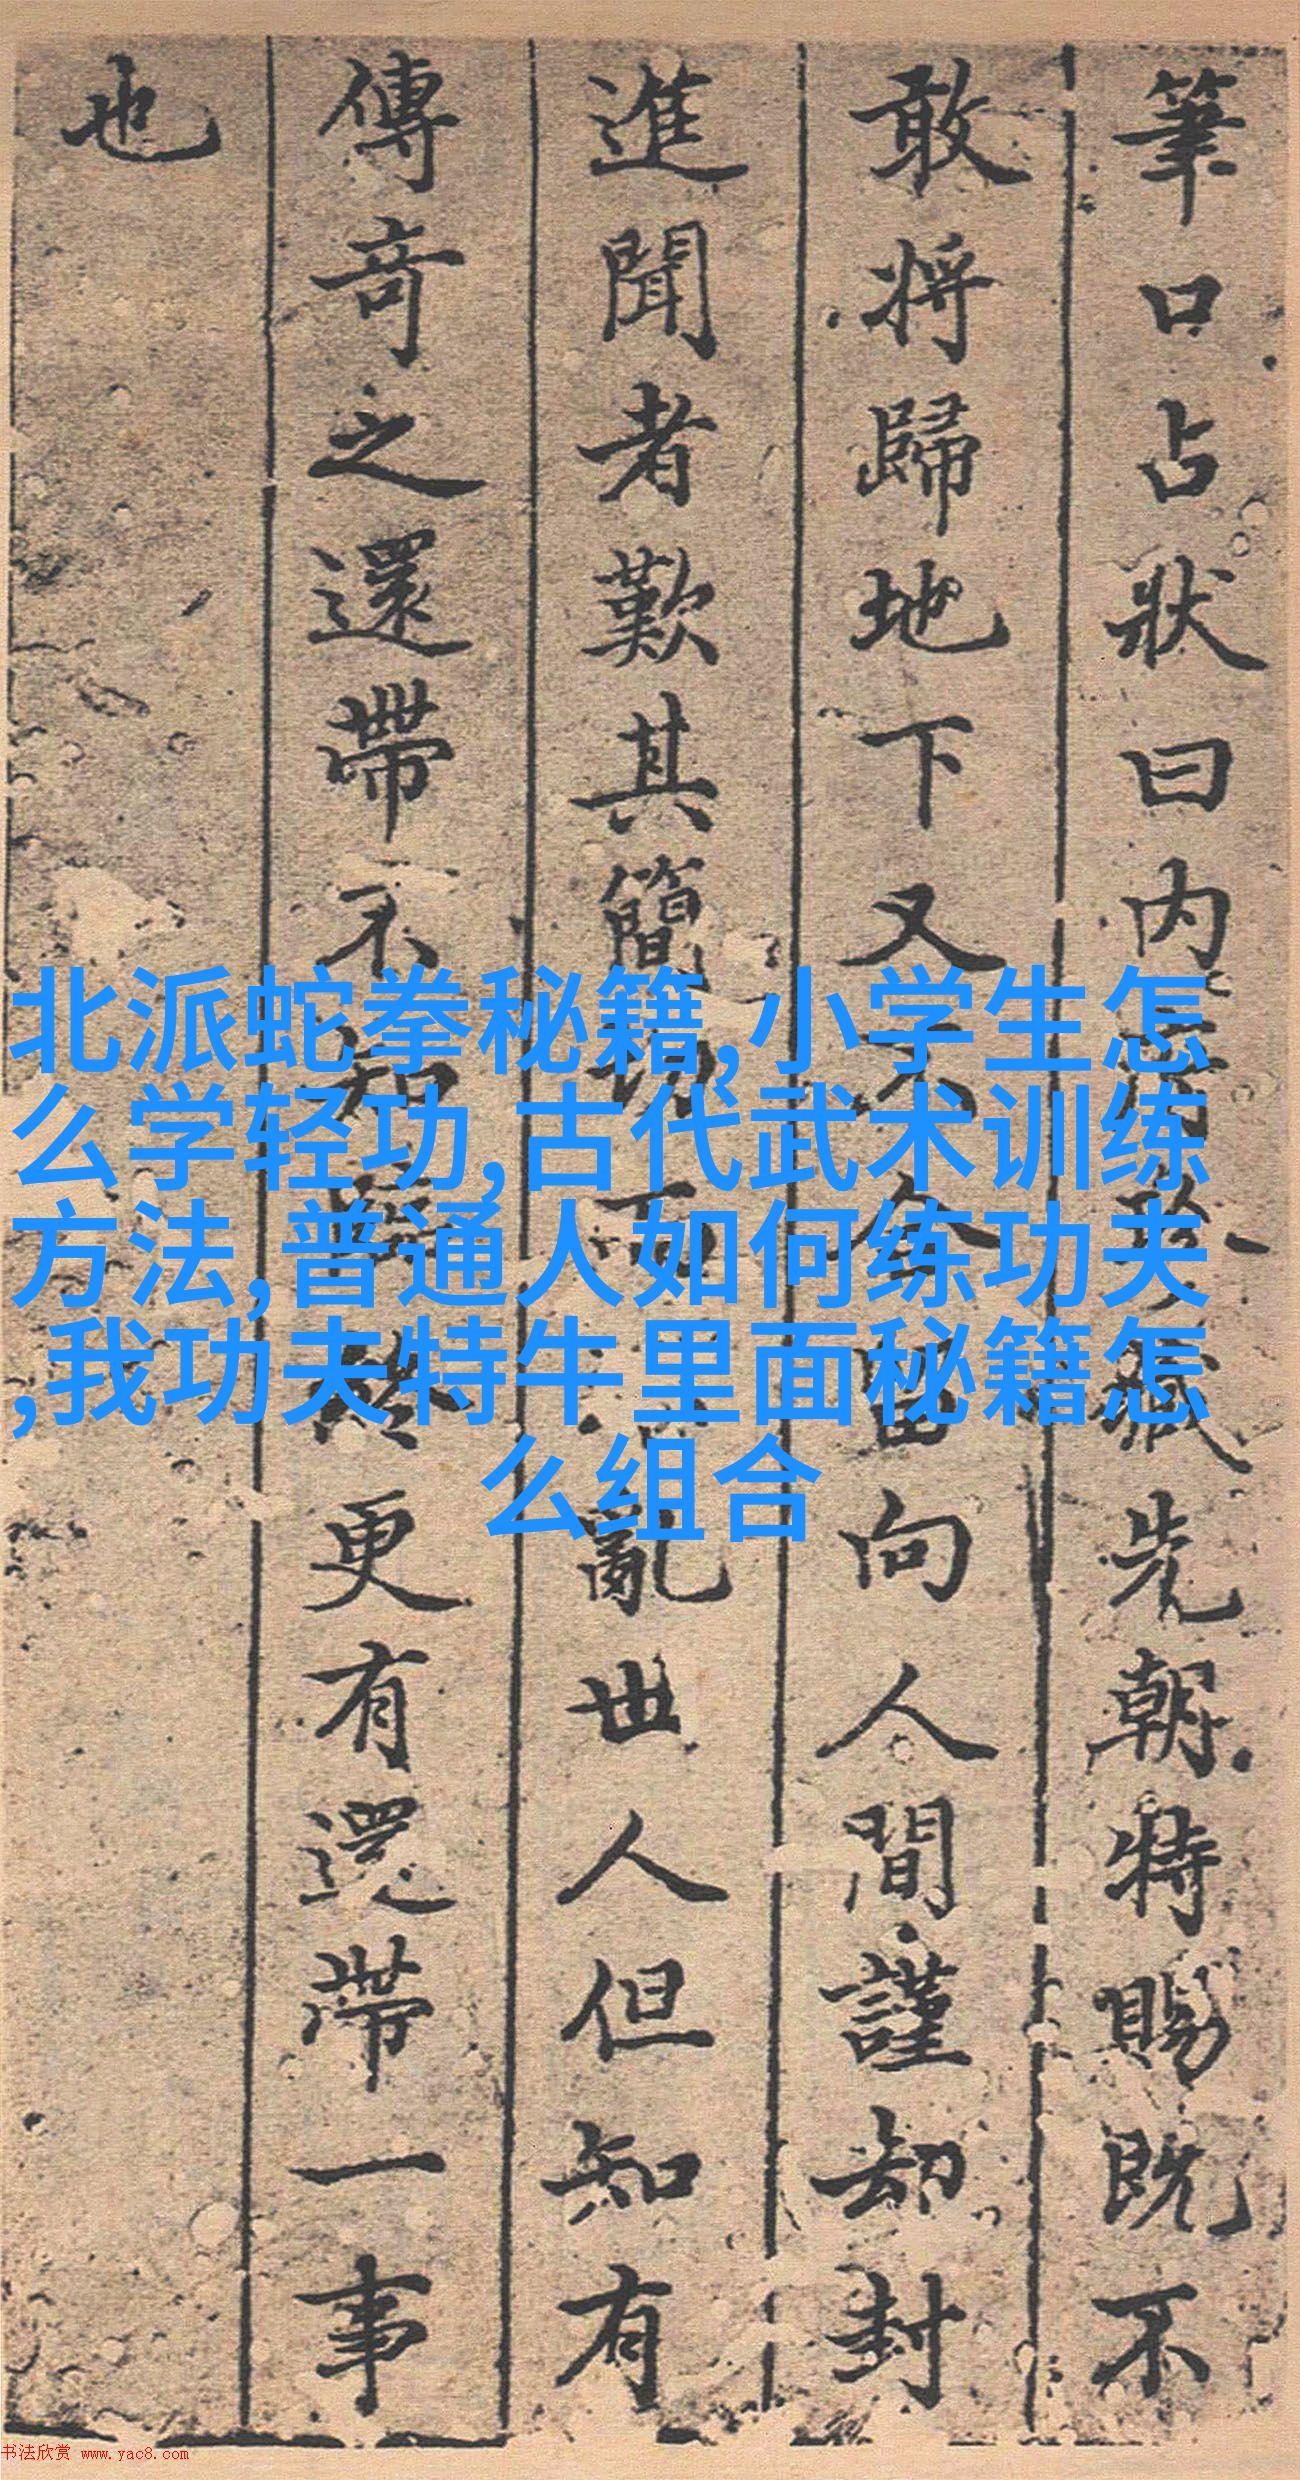 筆口占狀曰内先朝特賜既不
敢将歸地下又令留向人間謹却封
進聞者歎其簡切亂世人但知有
傳奇之還帶不知更有還帶一事
也
北派蛇拳秘籍,小学生怎
么学轻功,古代武术训练
方法,普通人如何练功夫
,我功夫特牛里面秘籍怎
么组合
书法欣赏 www.yac8.com